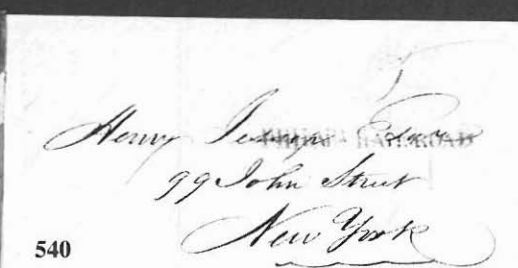 5
Henry
RAILROAD
99 John Street
New York
540